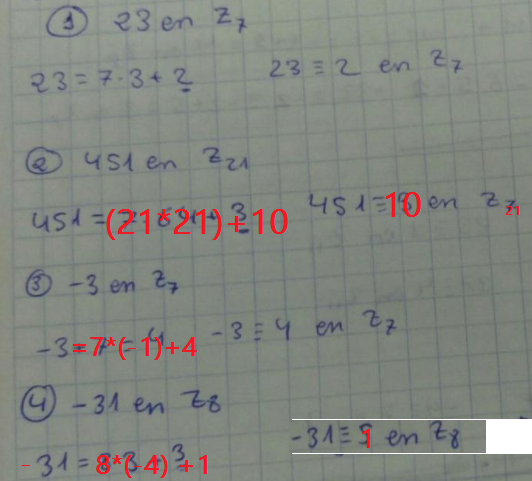 ① 23 en Z₇
23 = 7·3 + 2 23 ≡ 2 en Z₇
② 451 en Z₂₁
451 = (21*21)+10 451 ≡ 10 en Z 21
③ -3 en Z₇
-3 =7*(-1)+4 -3 ≡ 4 en Z₇
④ -31 en Z₈
-31 ≡ 1 en Z₈
-31 = 8*(-4) +1